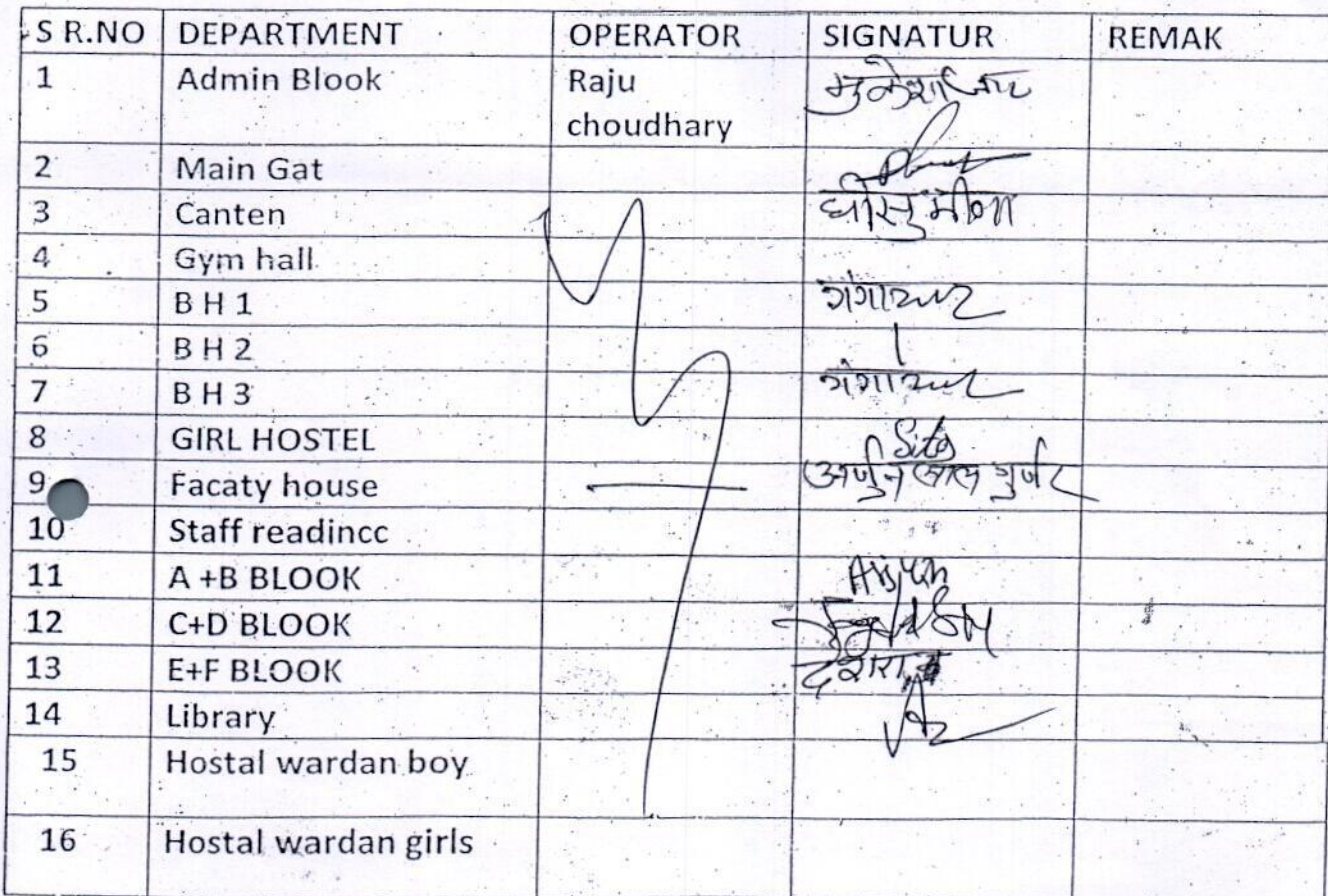 S R.NO DEPARTMENT OPERATOR SIGNATUR REMAK
1 Admin Blook Raju
choudhary
2 Main Gat
3 Canten घीसु मीणा
4 Gym hall
5 B H 1
6 B H 2
7 B H 3
8 GIRL HOSTEL
9 Facaty house अर्जुन लाल गुर्जर
10 Staff readincc
11 A +B BLOOK Arjun
12 C+D BLOOK
13 E+F BLOOK
14 Library
15 Hostal wardan boy
16 Hostal wardan girls